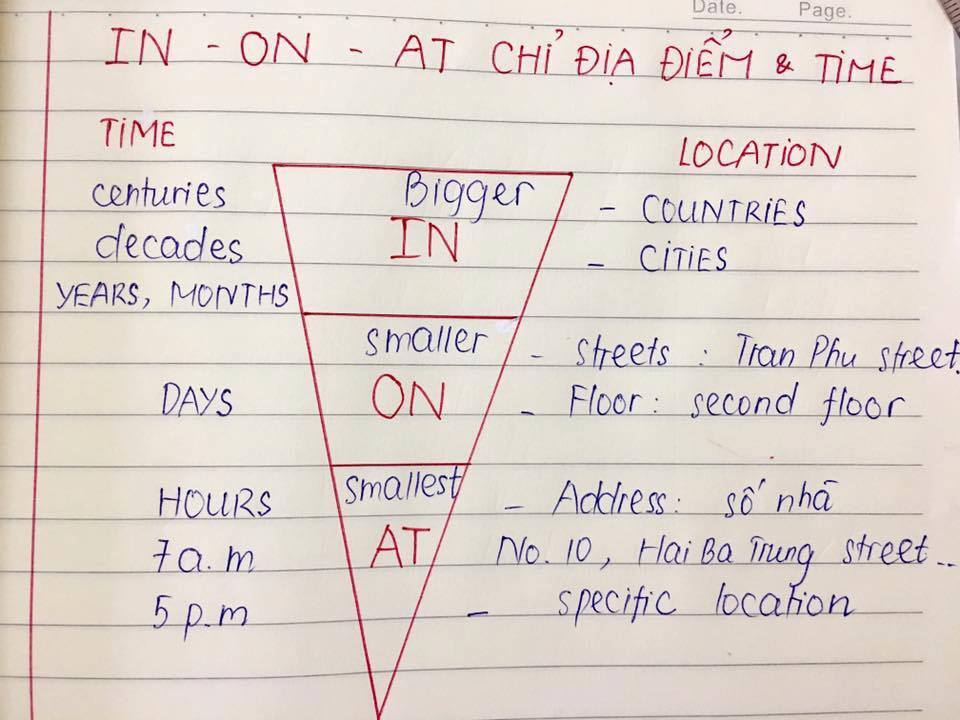 Date. Page.
IN - ON - AT CHỈ ĐỊA ĐIỂM & TIME
TIME
LOCATION
centuries
Bigger
- COUNTRIES
decades
IN
- CITIES
YEARS, MONTHS
smaller
- streets : Tran Phu street.
DAYS
ON
- Floor : second floor
smallest
HOURS
- Address : số nhà
7 a.m
AT
No. 10, Hai Ba Trung street ..
5 p.m
- specific location